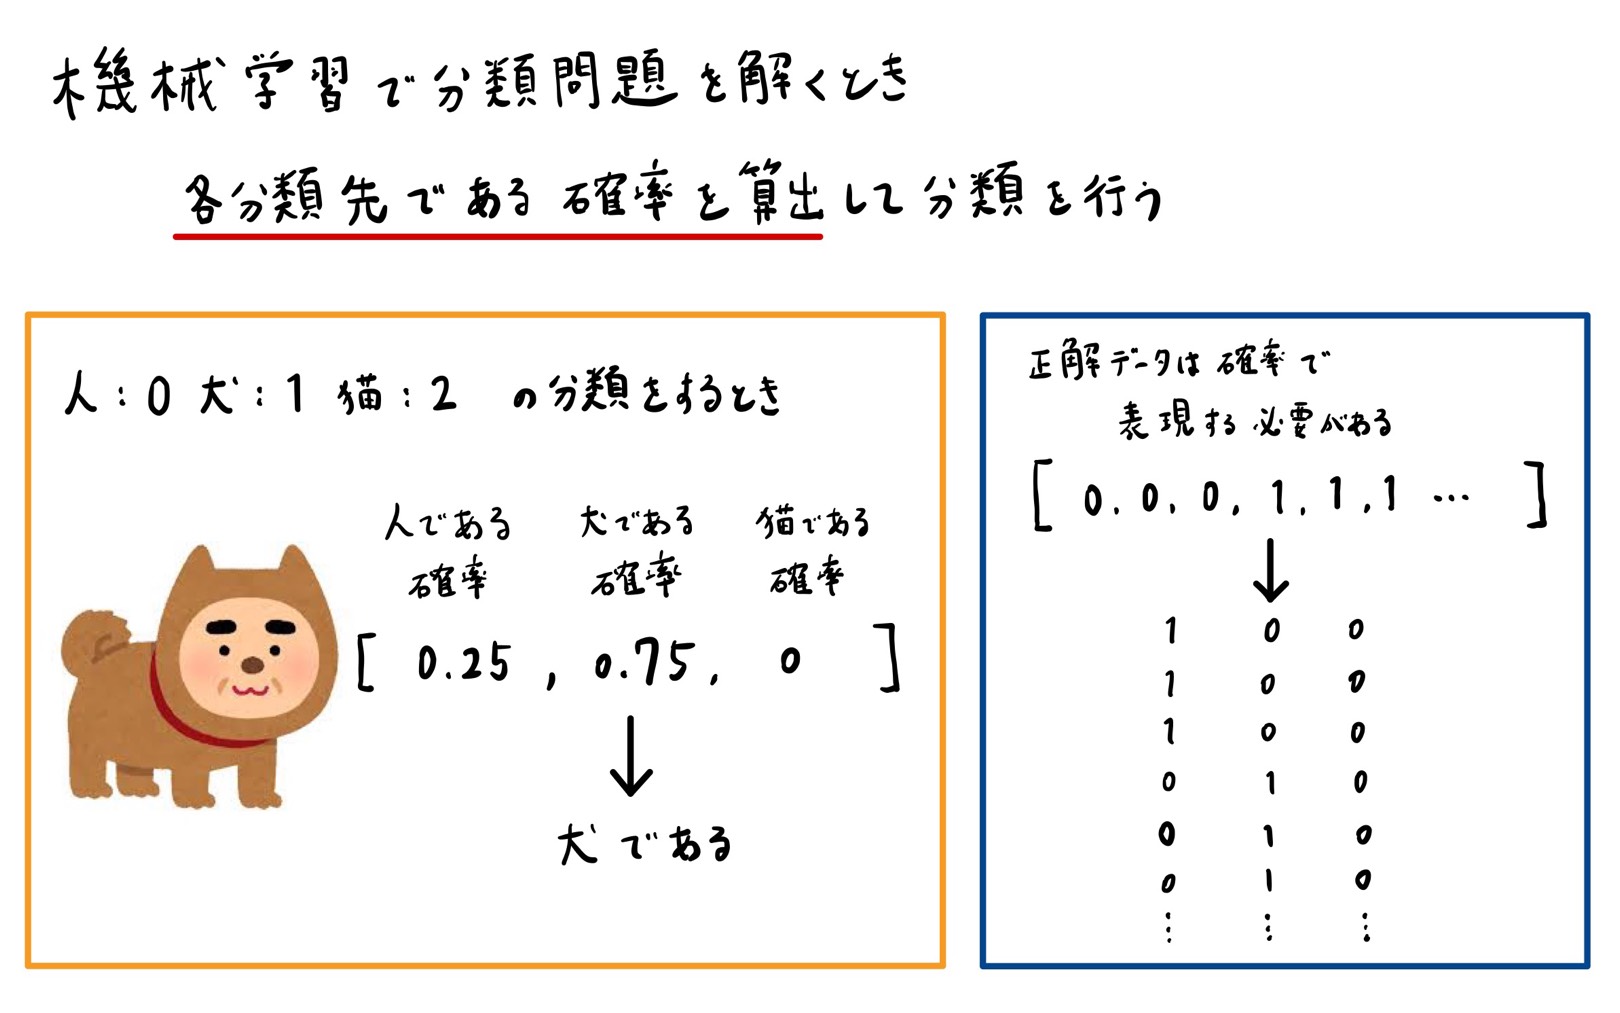 機械学習で分類問題を解くとき
各分類先である確率を算出して分類を行う
人:0 犬:1 猫:2 の分類をするとき
人である 犬である 猫である
確率 確率 確率
[ 0.25 , 0.75, 0 ]
犬である
正解データは確率で
表現する必要がある
[ 0. 0. 0, 1. 1 ,1 … ]
1 0 0
1 0 0
1 0 0
0 1 0
0 1 0
0 1 0
⋮ ⋮ ⋮